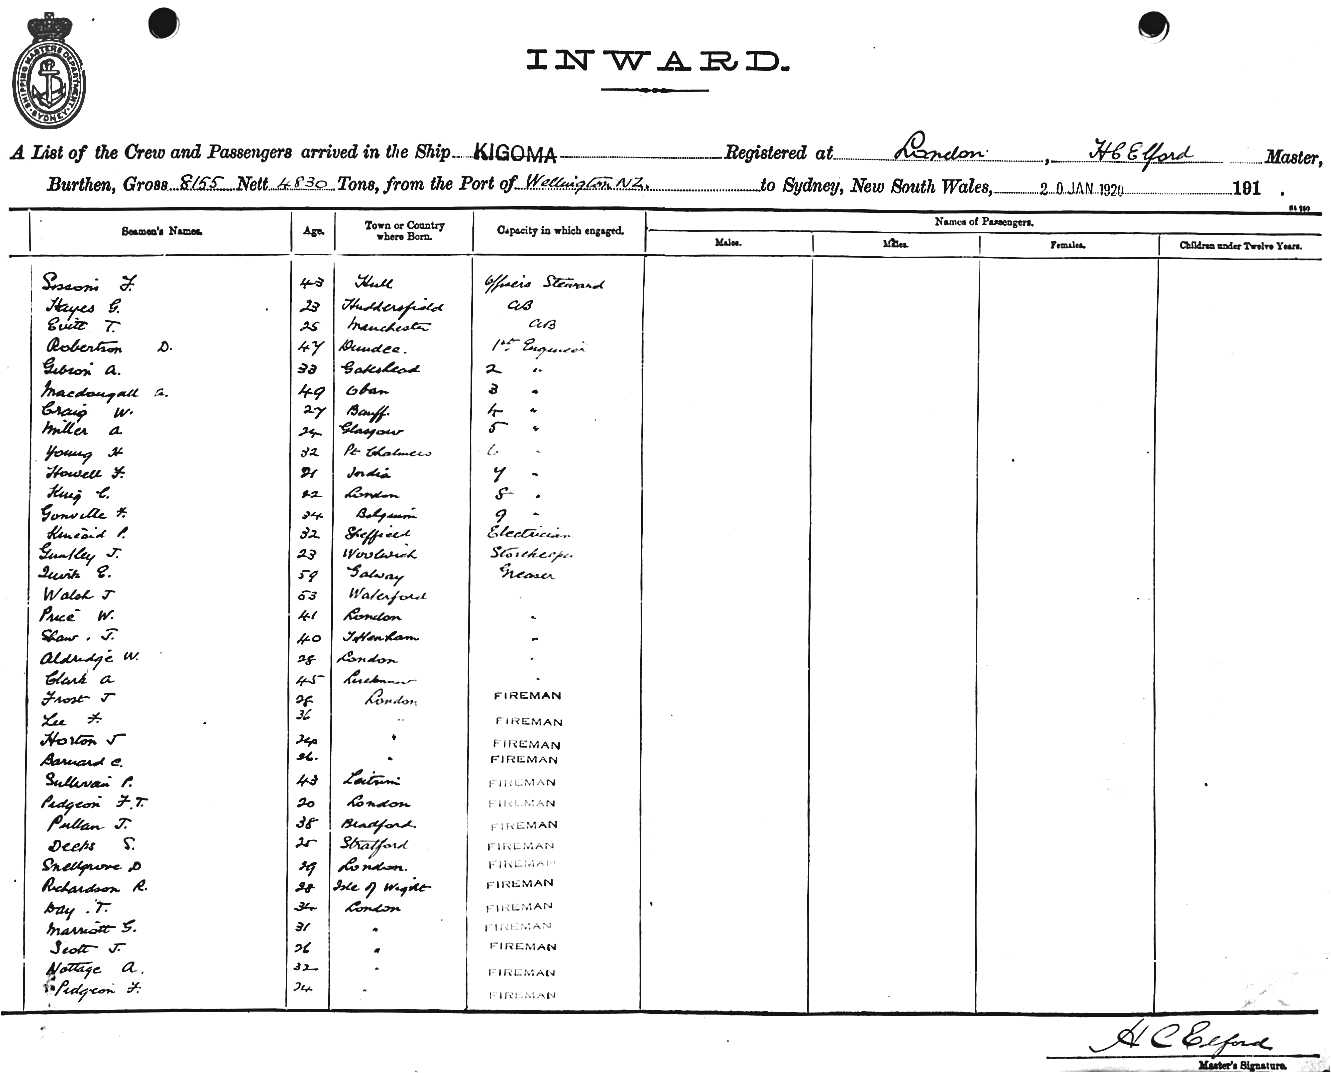 SHIPPING MASTERS DEPARTMENT SYDNEY
INWARD.
A List of the Crew and Passengers arrived in the Ship KIGOMA Registered at London, HC Elford Master,
Burthen, Gross 8155 Nett 4830 Tons, from the Port of Wellington NZ. to Sydney, New South Wales, 20 JAN 1920 191 .
Seamen's Names. Age. Town or Country where Born. Capacity in which engaged. Names of Passengers.
Males. Males. Females. Children under Twelve Years.
Sissons F. 43 Hull Officers Steward
Hayes G. 23 Huddersfield AB
Evitt T. 25 Manchester AB
Robertson D. 47 Dundee. 1st Engineer
Gibson A. 33 Gateshead 2 "
Macdougall A. 49 Oban 3 "
Craig W. 27 Banff. 4 "
Miller A 24 Glasgow 5 "
Young H 32 Pt Chalmers 6 "
Howell F. 21 India 7 "
King C. 22 London 8 "
Gonville F. 24 Belgium 9 "
Kincaid P. 32 Sheffield Electrician
J. 23 Woolwich Storekeeper
E. 59 Galway Greaser
Walsh J 53 Waterford "
Price W. 41 London "
Shaw. J. 40 Tottenham "
Aldridge W. 28 London "
Clark A 45 "
Frost J 28 London FIREMAN
Lee F. 36 " FIREMAN
Horton J 24 " FIREMAN
Barnard C. 26. " FIREMAN
Sullivan P. 43 Leitrim FIREMAN
Pidgeon F.T. 20 London FIREMAN
Pullan J. 38 Bradford. FIREMAN
Deeks S. 25 Stratford FIREMAN
Snellgrove D 29 London. FIREMAN
Richardson R. 28 Isle of Wight FIREMAN
Day. T. 34 London FIREMAN
Marriott G. 31 " FIREMAN
Scott J. 26 " FIREMAN
Nottage A. 32 " FIREMAN
Pidgeon F. 24 " FIREMAN
H C Elford
Master's Signature.